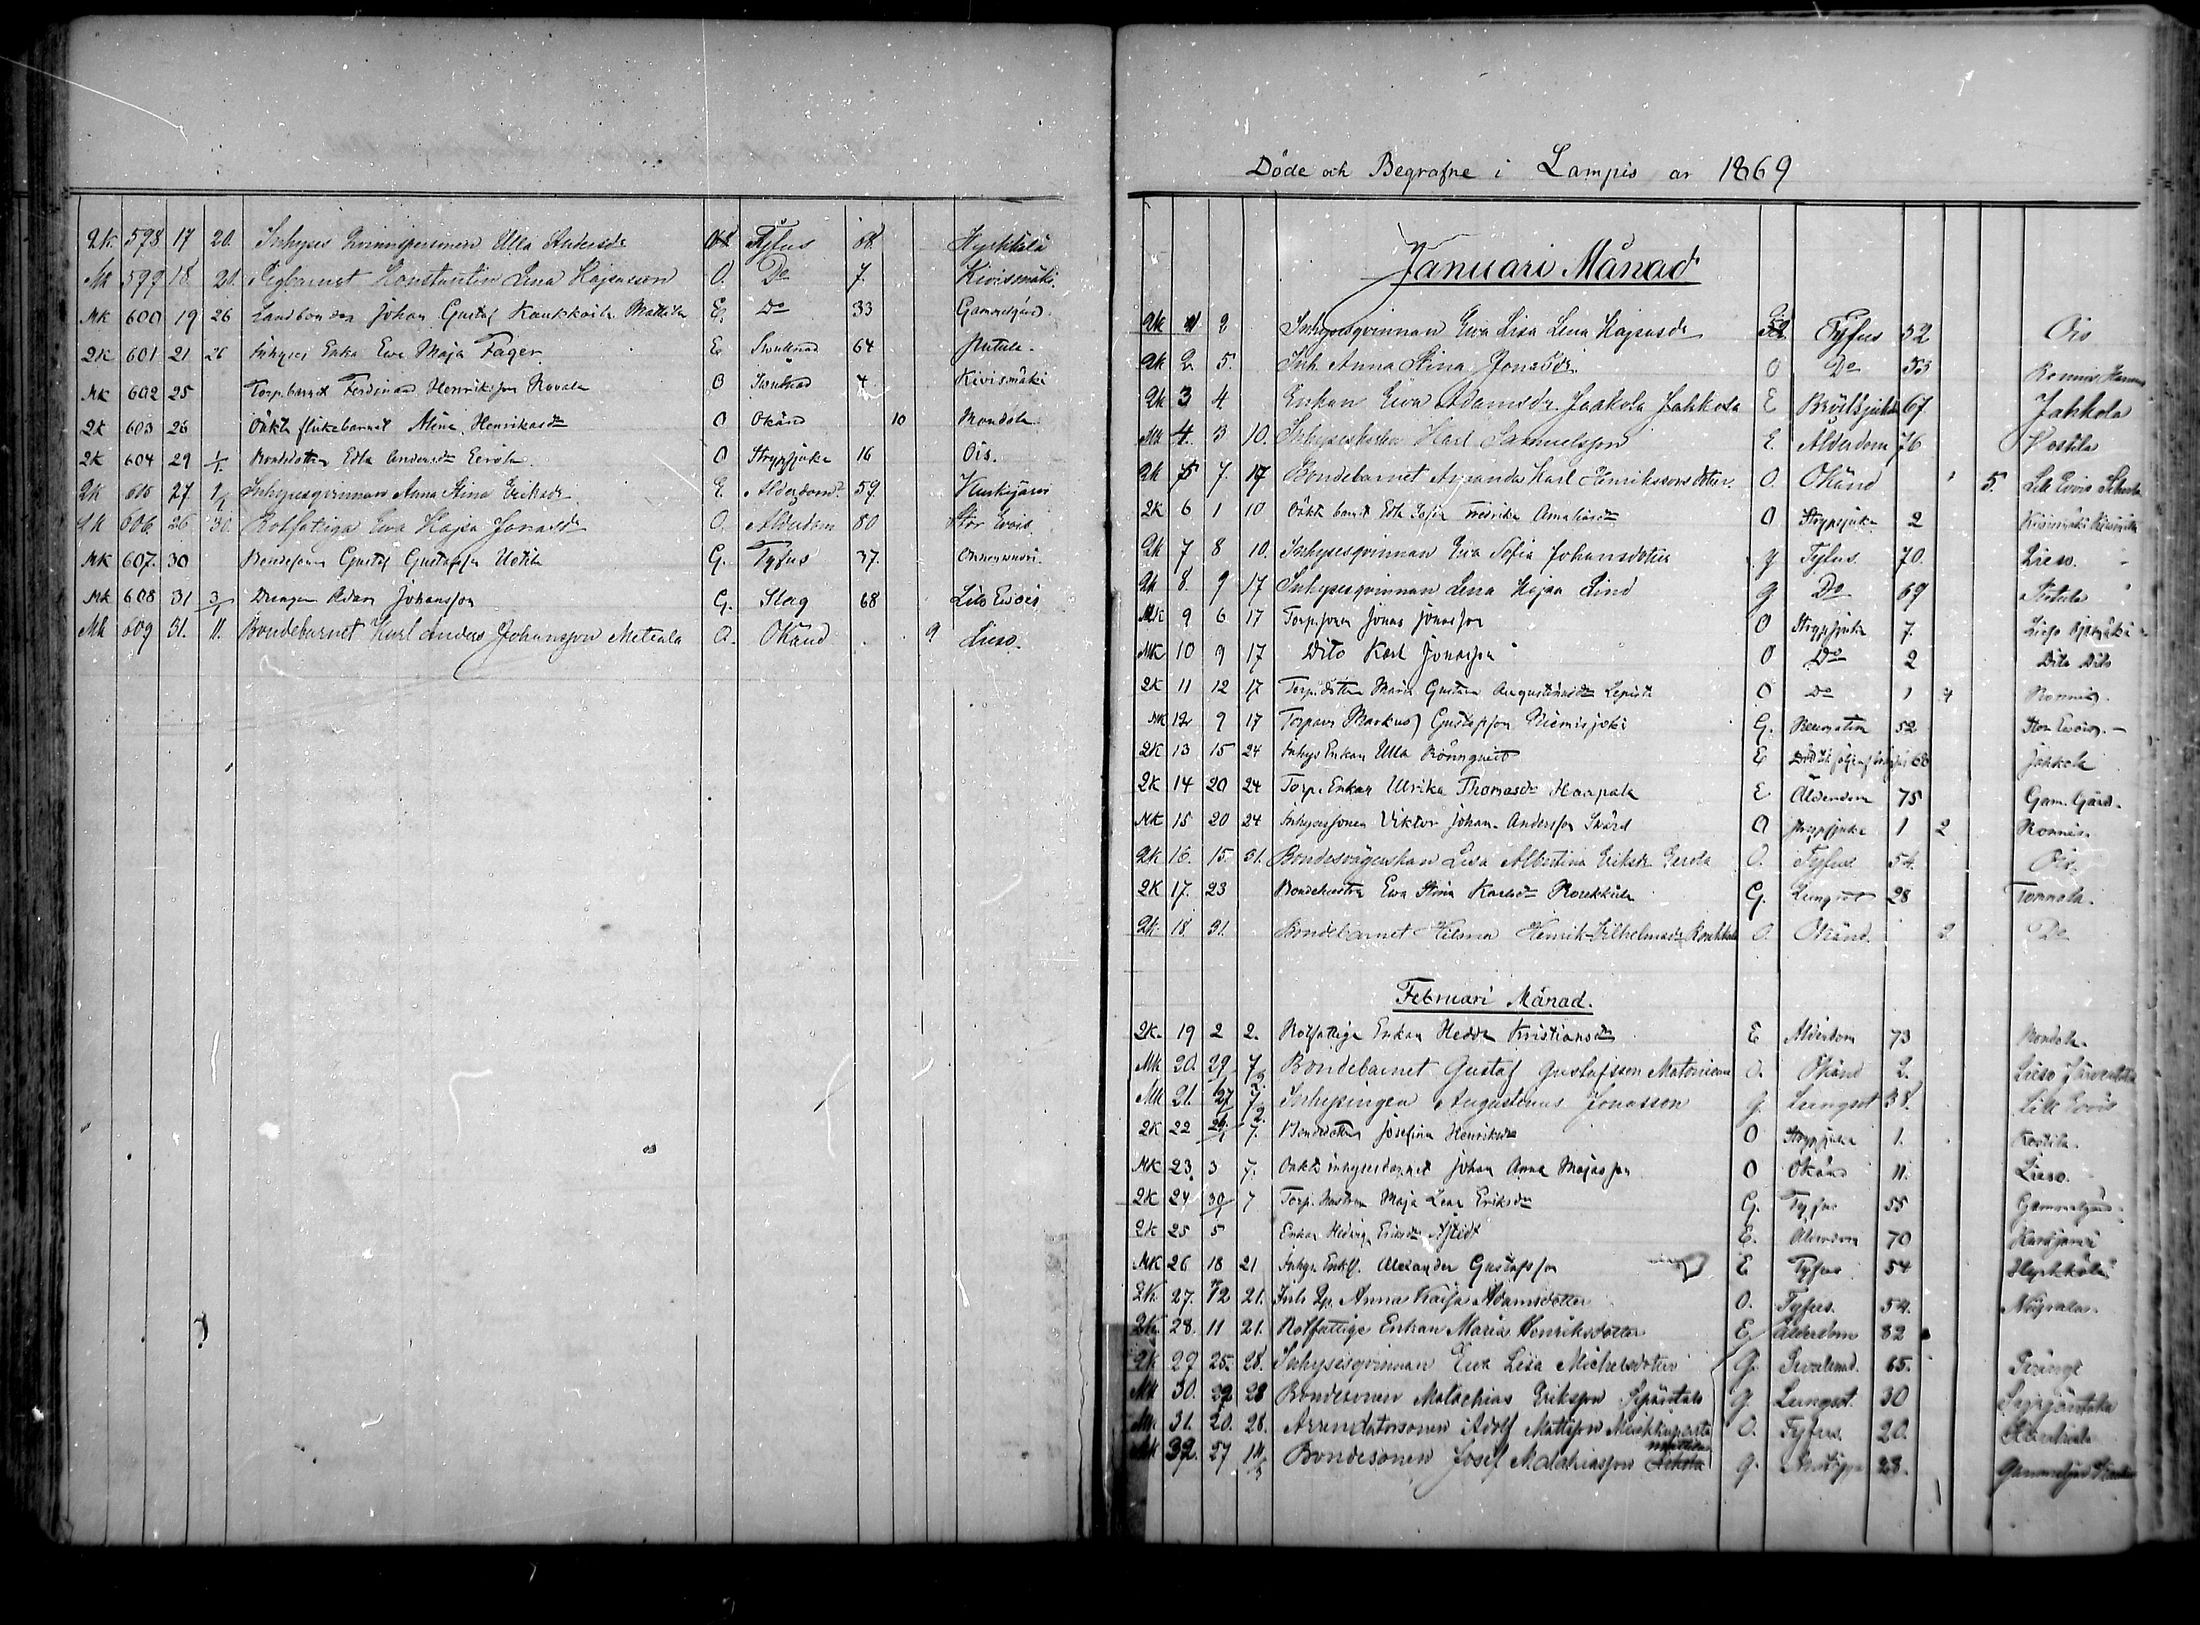 Qk. 598 17 20. Inhyses Qvinnspersonen Ulla Andersdr Tyfus 68. Hyrkkälä
Mk 599 18. 20. Pigbarnet Konstantin Lena Kajsasson O. Do 7. Kivismäki.
Mk 600 19 26 Landbonden Johan Gustaf Kaukkoila Mattila E. Do 33 Gammelgård.
Qk 601 21 26 Inhyses Enka Eva Maja Fager E 64
Mk 602 25 Torp.barnet Ferdinand Henriksson Rovala O 4 Kivismäki
Qk 603 26 Oäkta barnet Alina Henriksdr O Okänd 10 Mondola
Qk 604 29 1/1 Bondedottren Edla Andersdr Eerola. O Strypsjuka 16 Ois.
Qk 605 27. Inhysesqvinnan Anna Stina Eriksdr E. Alderdom 59.
Qk 606. 26 30. Rotfattiga Eva Kajsa Jonasdr O. Alderdom 80 Stor Evois
Mk 607. 30 Bondesonen Gustaf Gustafsson Uotila G. Tyfus 37.
Mk 608 31 3/1 Drengen Adam Johansson G. Slag 68 Lilo Evois
Mk 609 31. 11. Bondebarnet Karl Anders Johansson Metsala O. Okänd 9 Lieso.
Döde och Begrafne i Lampis år 1869
Januari Månad
Qk 1 2 Inhysesqvinnan Eva Lisa Lena Kajsasdr Tyfus 52 Ois
Qk 2. 5. Inh. Anna Stina Jonasdr. O Do 53
Qk 3 4 Enkan Eva Adamsdr Jaakola Jahkola E Bröstsjuka 67 Jahkola
Mk 4. 3 10. Inhyses Karl Samuelsson E. Alderdom 76
Qk 5 7. 17 Bondebarnet Amanda Karl Henrikssonsdotter. O. Okänd 5.
Qk 6 1 10 Oäkta barnet Edla Sofia Fredrika Amaliasdr O Strypsjuka 2 Kivismäki
Qk 7 8 10. Inhysesqvinnan Eva Sofia Johansdotter G Tyfus. 70. Lieso.
Qk 8. 9 17 Inhysesqvinnan Lena Kajsa Lind G Do 69
Mk 9 6 17 Torp.sonen Jonas Jonasson O Strypsjuka 7. Lieso
Mk 10 9 17 Dito Karl Jonasson O Do 2 Dito Dito
Qk 11 12 17 Torp.dotter Maria Gustava Augustinusdr Lepistö O Do 1 4 Ronnis.
Mk 12 9 17 Torparn Markus Gustafsson Niemisjoki G. 52 Stor Evois.
Qk 13 15 24 Inhys Enkan Ulla Rönnqvist E 68 Jahkola
Qk 14 20 24 Torp.Enkan Ulrika Thomasdr Haapala E Alderdom 75 Gam. Gård.
Mk 15 20 24 Inhysessonen Viktor Johan Andersson Svärd O Strypsjuka 1 2 Ronnis.
Qk 16. 15. 31. Lisa Albertina Eriksdr Eerola O. Tyfus 54. Ois.
Qk 17. 23 Bondehustru Eva Stina Karlsdr G. Lungsot 28 Tommola.
Qk 18 31. Bondebarnet Hilma Henrik Vilhelmsdr O. Okänd. 2 Do
Februari Månad.
Qk. 19 2 2. Rotfattiga Enkan Hedda Kristiansdr E Alderdom 73 Mondola.
Mk 20. 29 7/2 Bondebarnet Gustaf Gustafsson O. Okänd 2. Lieso
Mk 21. 27 7/2 Inhysingen Augustinus Jonasson G. Lungsot 38. Lill Evois
Qk 22 7. Bondedotter Josefina Henriksdr O Strypsjuka 1.
Mk 23. 3 7. Oäkta inhysesbarnet Johan Anna Majasson O Okänd 11. Lieso.
Qk 24 30/1 7 Torp. hustrun Maja Lena Eriksdr G. Tyfus 55 Gammelgård.
Qk 25 5 Enkan Hedvig Eriksdr E. Alderdom 70
Mk 26 18 21 Inhys. Enkl. Alexander Gustafsson E Tyfus 54 Hyrkkälä
Qk 27. 12 21. Inh Qp. Anna Kaisa Adamsdotter O. Tyfus. 54.
Qk. 28. 11 21. Rotfattige Enkan Maria Henriksdotter E. Alderdom 82
Qk 29 25. 28. Inhysesqvinnan Eva Lisa Michelsdotter G. 65.
Mk 30. 22 28 Bondesonen Malachias Eriksson G Lungsot. 30
Mk. 31. 20. 28. Arrendatorsonen Adolf Mattsson O. Tyfus. 20.
Mk 32. 27 14/3 Bondesonen Josef Malachiasson G. 28.